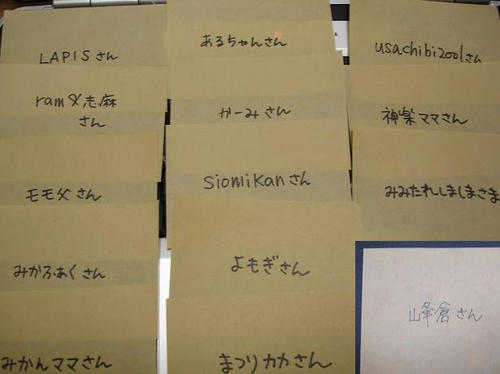 LAPISさん
ram&志麻
さん
モモ父さん
みかふぁくさん
みかんママさん
あるちゃんさん
かーみさん
siomikanさん
よもぎさん
まつりカカさん
usachibi2001さん
神楽ママさん
みみたれしましまさま
峰倉さん